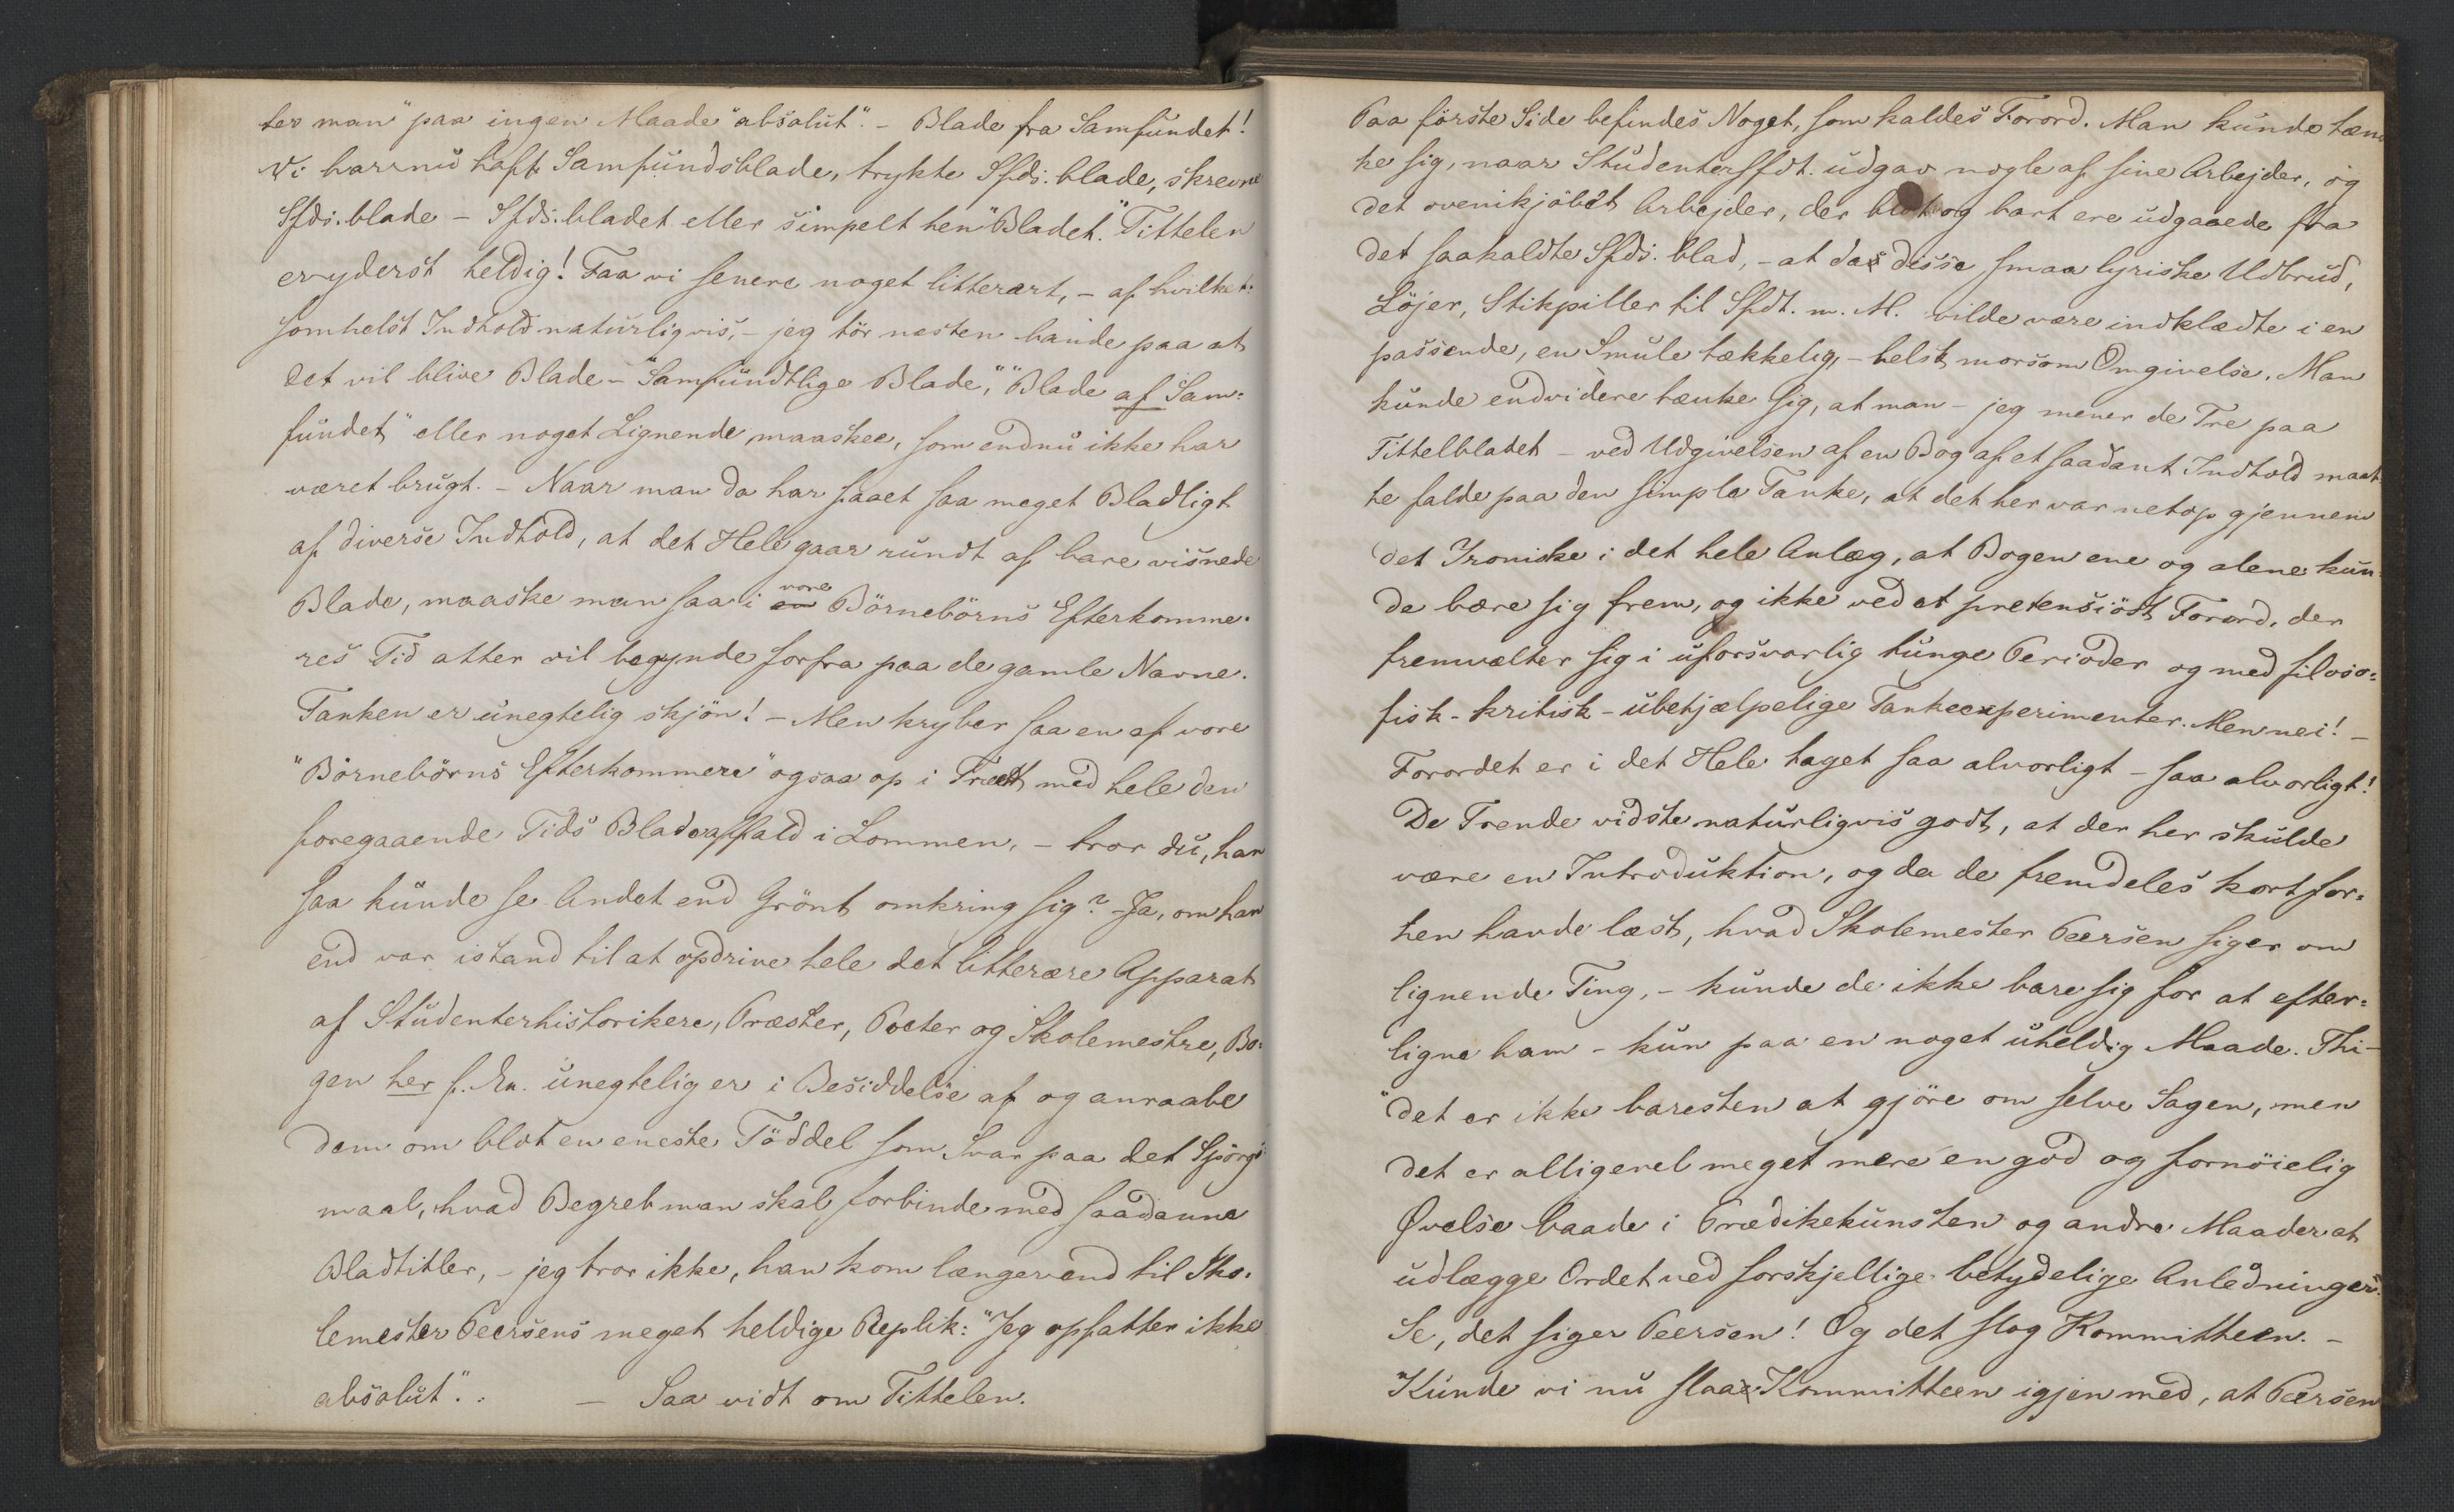 ter man" paa ingen Maade "absolut". - Blade fra Samfundet!
Vi har nu haft Samfundsblade, trykte Sfds. blade, skrevne
Sfds. blade - Sfds. bladet eller simpelt hen "Bladet." Tittelen
er yderst heldig! Faa vi senere noget litterært, - af hvilket-
somhelst Indhold naturligvis, - jeg tör næsten bande paa at
det vil blive Blade - "Samfundtlige Blade", "Blade af Sam-
fundet" eller noget Lignende maaskee, som endnu ikke har
været brugt. - Naar man da har faaet saa meget Bladligt
af diverse Indhold, at det Hele gaar rundt af bare visnede
Blade, maaske man saa i vore Börnebörns Efterkomme-
res Tid atter vil begynde forfra paa de gamle Navne.
Tanken er unegtelig skjön! - Men kryber saa en af vore
"Börnebörns Efterkommere" ogsaa op i Træet med hele den
foregaaende Tids Bladaffald i Lommen, - tror du, han
saa kunde se Andet end Grönt omkring sig? - Ja, om han
end var istand til at opdrive hele det litterære Apparat
af Studenterhistorikere, Præster, Poeter og Skolemestre, Bo-
gen her f. Ex. unegtelig er i Besiddelse af og anraabe
dem om blot en eneste Töddel som Svar paa det Spörgs-
maal, hvad Begreb man skal forbinde med saadanne
Bladtitler, - jeg tror ikke, han kom længer end til Sko-
lemester Peersens meget heldige Replik: "Jeg opfatter ikke
absolut". - Saa vidt om Tittelen.
Paa förste Side befindes Noget, som kaldes Forord. Man kunde tæn
ke sig, naar Studentersfdt. udgav nogle af sine Arbejder, og
det ovenikjöbet Arbejder, der blot og bart ere udgaaede fra
det saakaldte Sfds. blad, - at da disse smaa lyriske Udbrud,
Löjer, Stikpiller til Sfdt. m. M. vilde være indklædte i en
passende, en Smule tækkelig, - helst morsom Omgivelse. Man
kunde endvidere tænke sig, at man - jeg mener de Tre paa
Tittelbladet - ved Udgivelsen af en Bog af et saadant Indhold maat
te falde paa den simple Tanke, at det her var netop gjennem
det Ironiske i det hele Anlæg, at Bogen ene og alene kun-
de bære sig frem, og ikke ved et pretensiöst Forord, der
fremvælter sig i uforsvarlig tunge Perioder og med filoso-
fisk - kritisk - ubehjælpelige Tankeexperimenter. Men nei! -
Forordet er i det Hele taget saa alvorligt - saa alvorligt!
De Trende vidste naturligvis godt, at der her skulde
være en Introduktion, og da de fremdeles kort for-
hen havde læst, hvad Skolemester Peersen siger om
lignende Ting, - kunde de ikke bare sig for at efter-
ligne ham - kun paa en noget uheldig Maade. Thi -
"det er ikke baresten at gjöre om selve Sagen, men
det er alligevel meget mere en god og fornöielig
Øvelse baade i Prædikekunsten og andre Maader at
udlægge Ordet ved forskjellige betydelige Anledninger."
Se, det siger Peersen! Og det slog Kommitteen. -
Kunde vi nu slaa Kommitteen igjen med, at Peersen